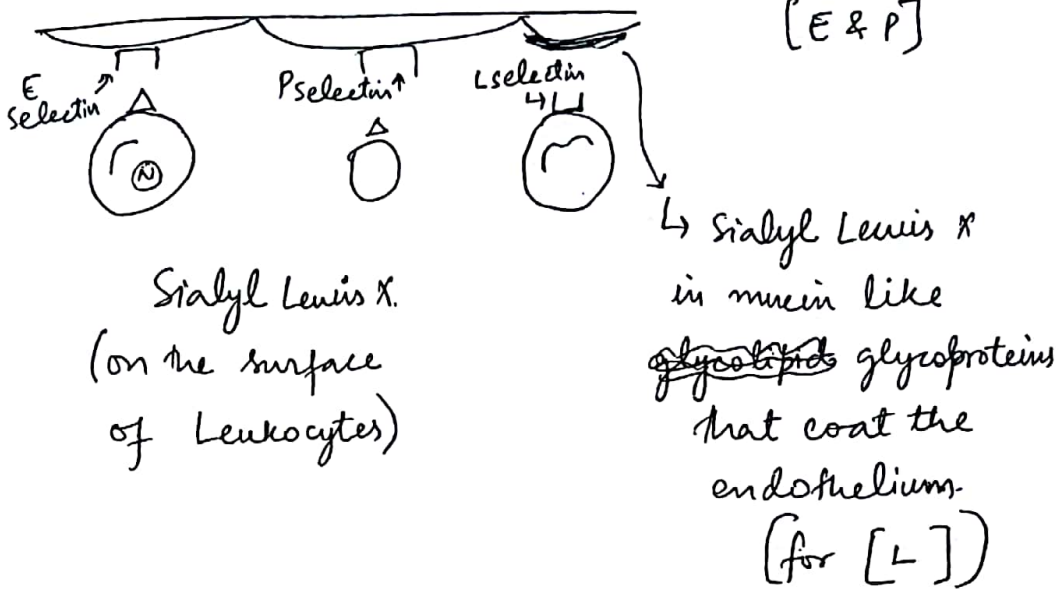 [E & P]
E
selectin
Pselectin
Lselectin
N
Sialyl Lewis X.
(on the surface
of Leukocytes)
Sialyl Lewis X
in mucin like
glycolipids glycoproteins
that coat the
endothelium.
(for [L])